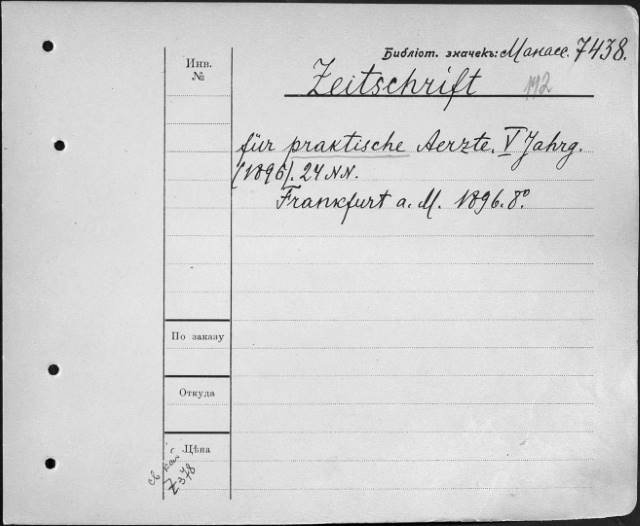 Библіот. значекъ: Манасс. 7438.
Инв.
№
Zeitschrift 112
für praktische Aerzte. V Jahrg.
(1896). 24 NN.
Frankfurt a. M. 1896. 8°.
По заказу
Откуда
Цѣна